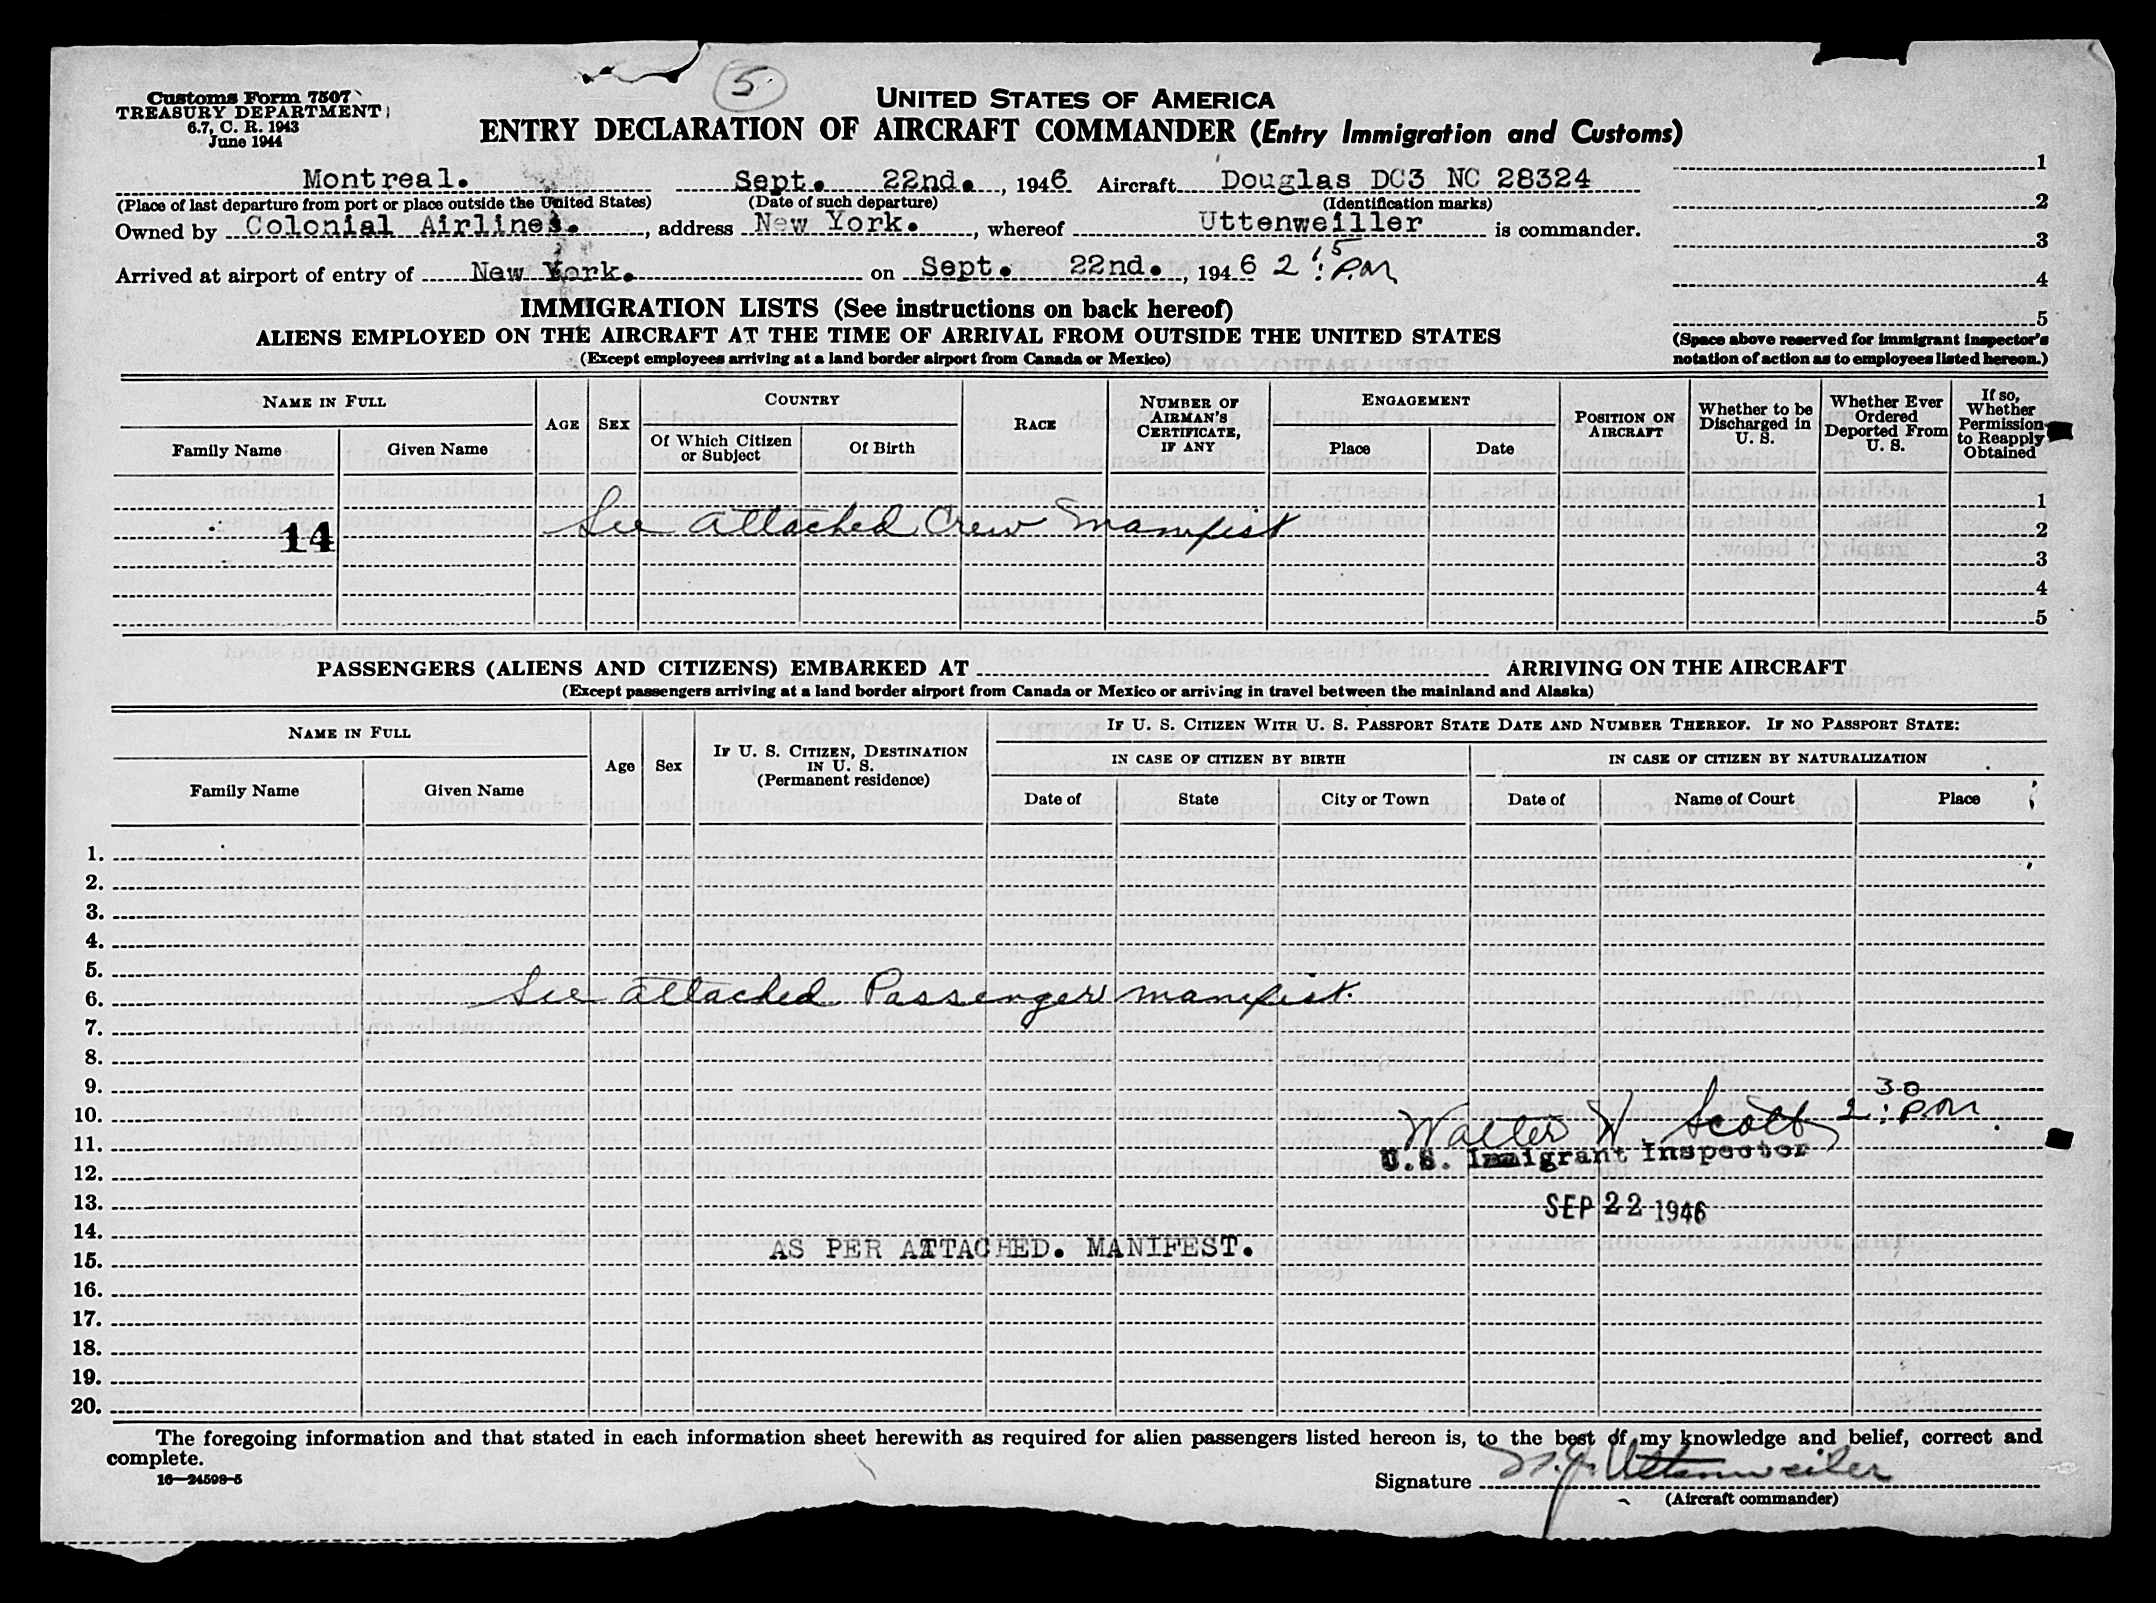 5
Customs Form 7507
TREASURY DEPARTMENT
6.7, C. R. 1943
June 1944
UNITED STATES OF AMERICA
ENTRY DECLARATION OF AIRCRAFT COMMANDER (Entry Immigration and Customs)
Montreal. Sept. 22nd., 1946 Aircraft Douglas DC3 NC 28324
(Place of last departure from port or place outside the United States) (Date of such departure) (Identification marks)
Owned by Colonial Airlines., address New York., whereof Uttenweiller is commander.
Arrived at airport of entry of New York. on Sept. 22nd., 1946 2:15 P.M
1
2
3
4
5
(Space above reserved for immigrant inspector's
notation of action as to employees listed hereon.)
IMMIGRATION LISTS (See instructions on back hereof)
ALIENS EMPLOYED ON THE AIRCRAFT AT THE TIME OF ARRIVAL FROM OUTSIDE THE UNITED STATES
(Except employees arriving at a land border airport from Canada or Mexico)
NAME IN FULL
Family Name Given Name
AGE SEX
COUNTRY
Of Which Citizen or Subject
Of Birth
RACE
NUMBER OF AIRMAN'S CERTIFICATE, IF ANY
ENGAGEMENT
Place Date
POSITION ON AIRCRAFT
Whether to be Discharged in U. S.
Whether Ever Ordered Deported From U. S.
If so, Whether Permission to Reapply Obtained
1
14 See attached Crew Manifist 2
3
4
5
PASSENGERS (ALIENS AND CITIZENS) EMBARKED AT ARRIVING ON THE AIRCRAFT
(Except passengers arriving at a land border airport from Canada or Mexico or arriving in travel between the mainland and Alaska)
NAME IN FULL
Family Name Given Name
Age Sex
IF U. S. CITIZEN, DESTINATION IN U. S.
(Permanent residence)
IF U. S. CITIZEN WITH U. S. PASSPORT STATE DATE AND NUMBER THEREOF. IF NO PASSPORT STATE:
IN CASE OF CITIZEN BY BIRTH IN CASE OF CITIZEN BY NATURALIZATION
Date of State City or Town Date of Name of Court Place
1.
2.
3.
4.
5.
6. See attached Passenger manifist.
7.
8.
9.
10. Walter W. Scott 2:30 P.M
11. U.S. Immigrant Inspector
12.
13. SEP 22 1946
14.
15. AS PER ATTACHED. MANIFEST.
16.
17.
18.
19.
20.
The foregoing information and that stated in each information sheet herewith as required for alien passengers listed hereon is, to the best of my knowledge and belief, correct and
complete.
16—24598-5
Signature W.J. Uttenweiler
(Aircraft commander)